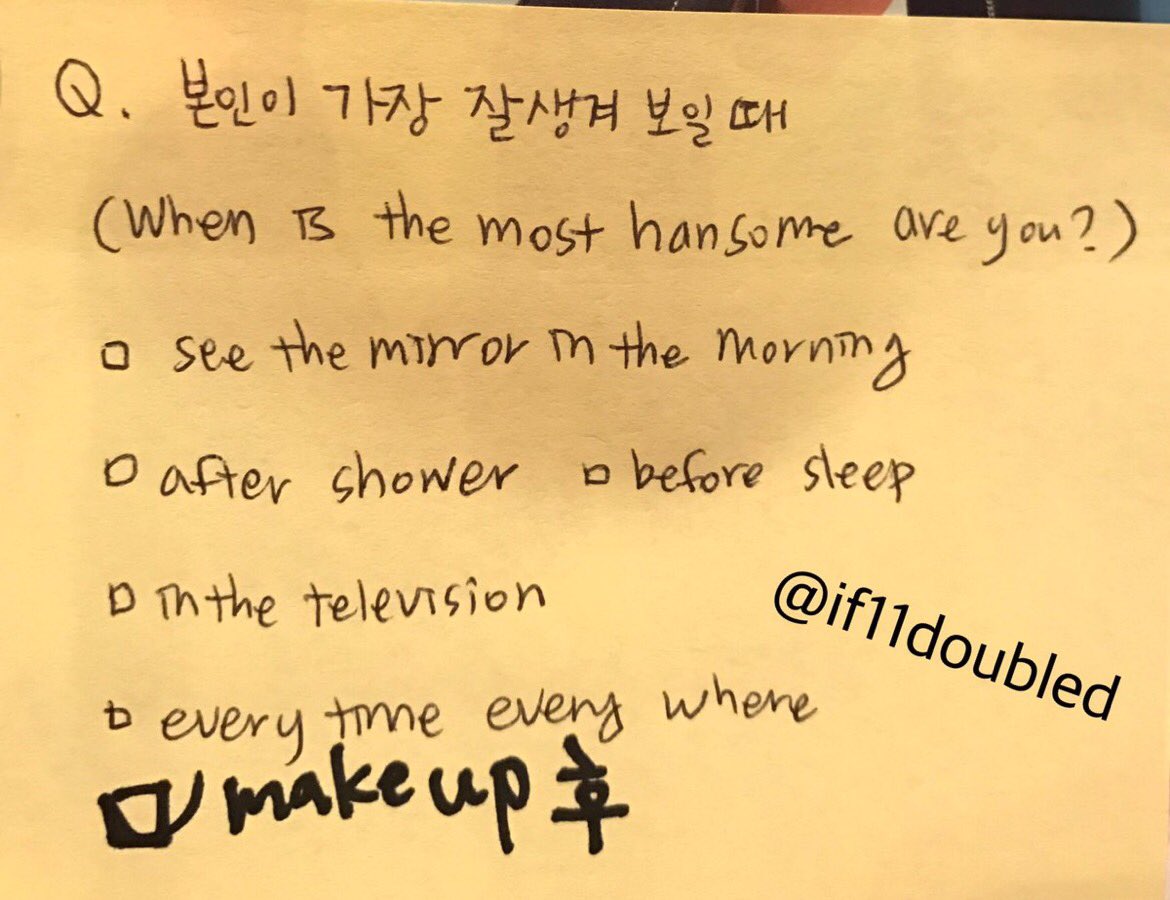 Q. 본인이 가장 잘생겨 보일 때
(When is the most hansome are you?)
□ see the mirror in the morning
□ after shower □ before sleep
□ in the television
@if11doubled
□ every time every where
☑ make up 후